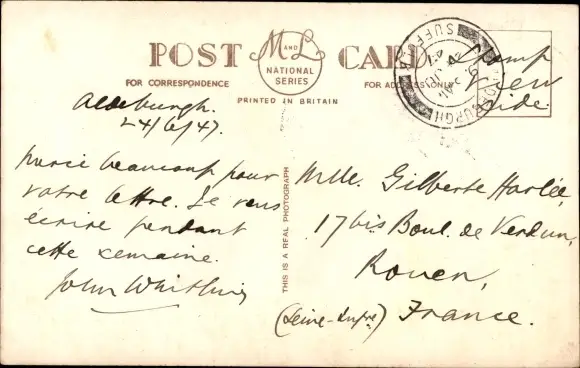 POST CARD
M AND L
NATIONAL
SERIES
FOR CORRESPONDENCE
FOR ADDRESS ONLY
PRINTED IN BRITAIN
Stamp
View
Side.
ALDEBURGH
SUFFOLK
Aldeburgh.
24/6/47.
Merci beaucoup pour
votre lettre. Je vous
écrire pendant
cette semaine.
John
THIS IS A REAL PHOTOGRAPH
Mlle. Gilberte Harlée,
17 bis Boul. de Verdun,
Rouen,
(Seine-Infre) France.